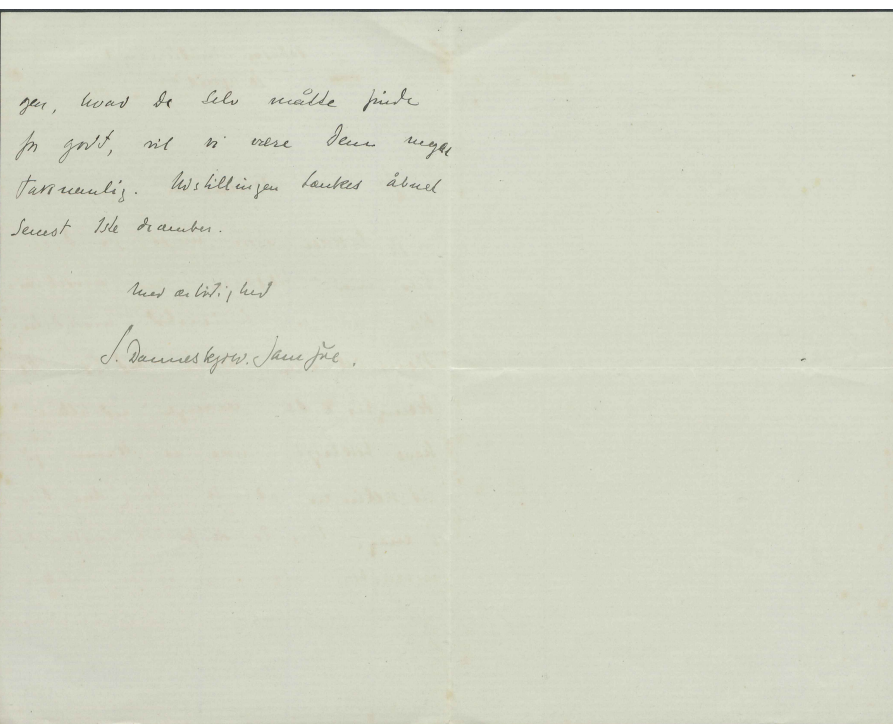 gen, hvad De selv måtte finde
for godt, vil vi være Dem meget
taknemlig. Udstillingen tænkes åbnet
senest 1ste december.
Med ærbødighed
S. Danneskjow. Samsøe.